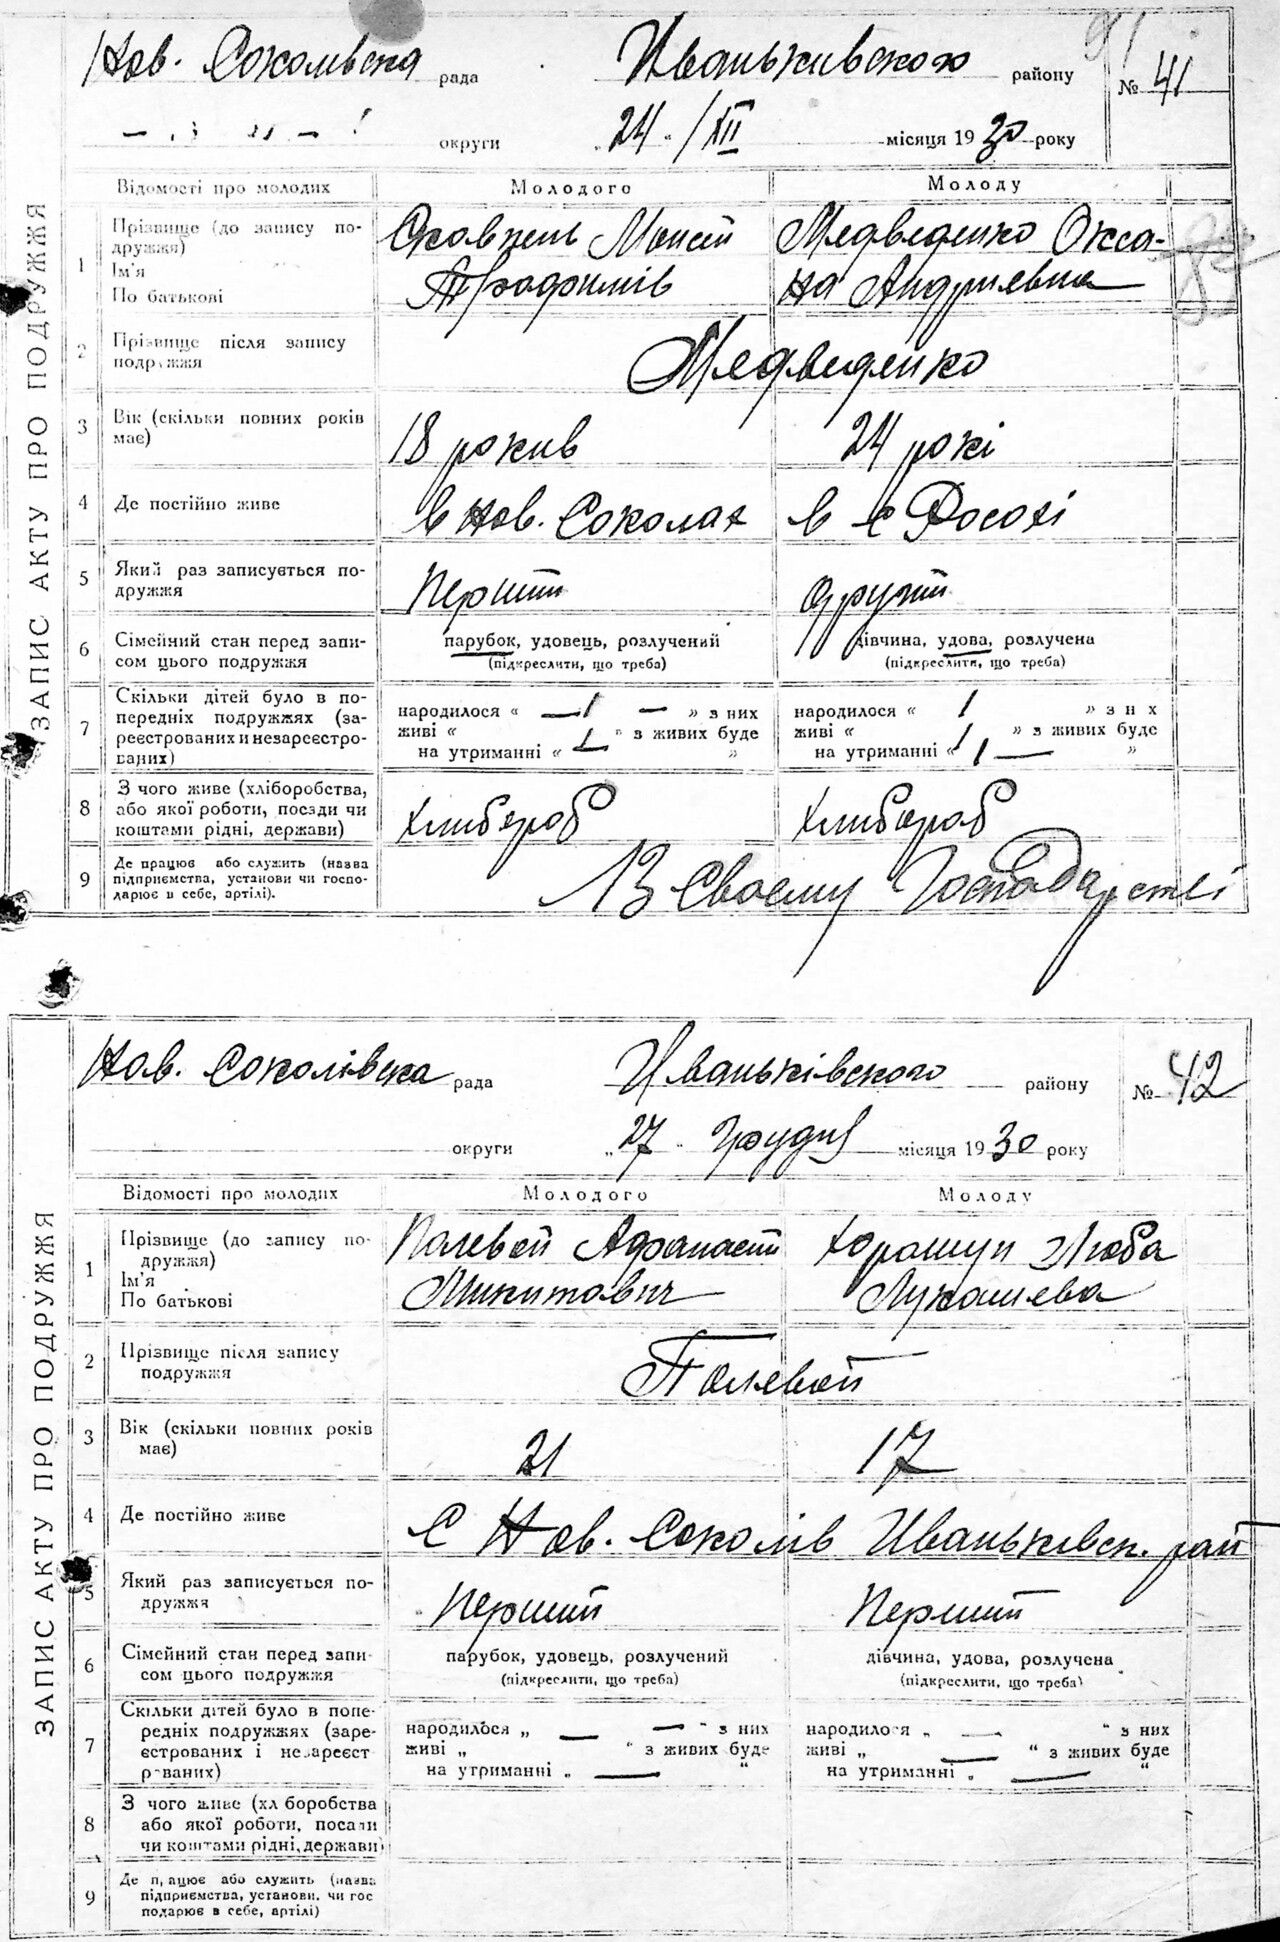 91
Нов. Соколивска рада Иваньківского району № 41
округи „ 24 „ /XII місяця 1930 року
ЗАПИС АКТУ ПРО ПОДРУЖЖЯ
Відомості про молодих Молодого Молоду
1 Прізвище (до запису по- Мойсей Медведенко Окса-
дружжя)
Ім'я Трофимів на Андриевна
По батькові
2 Прізвище після запису Медведенко
подружжя
3 Вік (скільки повних років 18 рокив 24 рокі
має)
4 Де постійно живе в Нов. Соколах в с Росохі
5 Який раз записується по- Перший другий
дружжя
6 Сімейний стан перед запи- парубок, удовець, розлучений дівчина, удова, розлучена
сом цього подружжя (підкреслити, що треба) (підкреслити, що треба)
7 Скільки дітей було в по-
передніх подружжях (за- народилося « — 1 — » з них народилося « 1 » з н х
реєстрованих и незареєстро- живі « " з живих буде живі « 1 » з живих буде
ваних) на утриманні « » на утриманні « 1 — »
8 З чого живе (хліборобства, Хлибороб Хлибороб
або якої роботи, посади чи
коштами рідні, держави)
9 Де працює або служить (назва В Своему Господарстві
підприємства, установи чи госпо-
дарює в себе, артілі).
Нов. Соколівска рада Иваньківского району № 42
округи „ 27 „ Грудня місяця 1930 року
ЗАПИС АКТУ ПРО ПОДРУЖЖЯ
Відомості про молодих Молодого Молоду
1 Прізвище (до запису по- Полевой Афанасий Хорошун Люба
дружжя)
Ім'я Микитович Лукашева
По батькові
2 Прізвище після запису Полевой
подружжя
3 Вік (скільки повних років 21 17
має)
4 Де постійно живе С Нов. Соколів Иваньківск. рай
5 Який раз записується по- Перший Перший
дружжя
6 Сімейний стан перед запи- парубок, удовець, розлучений дівчина, удова, розлучена
сом цього подружжя (підкреслити, що треба) (підкреслити, що треба)
7 Скільки дітей було в попе-
редніх подружжях (заре- народилося „ — — " з них народилося „ — " з них
єстрованих і незареєст живі „ " з живих буде живі „ — " з живих буде
рованих) на утриманні „ — " на утриманні „ — "
8 З чого живе (хл боробства
або якої роботи, посади
чи коштами рідні, держави)
9 Де працює або служить (назва
підприємства, установи. чи гос
подарює в себе, артілі)